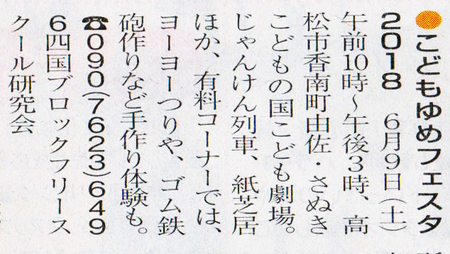 ●こどもゆめフェスタ
2018　6月9日(土)
午前10時～午後3時、高
松市香南町由佐・さぬき
こどもの国こども劇場。
じゃんけん列車、紙芝居
ほか、有料コーナーでは、
ヨーヨーつりや、ゴム鉄
砲作りなど手作り体験も。
☎090(7623)649
6四国ブロックフリース
クール研究会